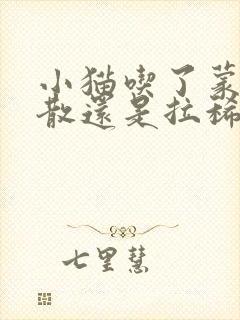 小猫喫了蒙
散還是拉稀
七里慧